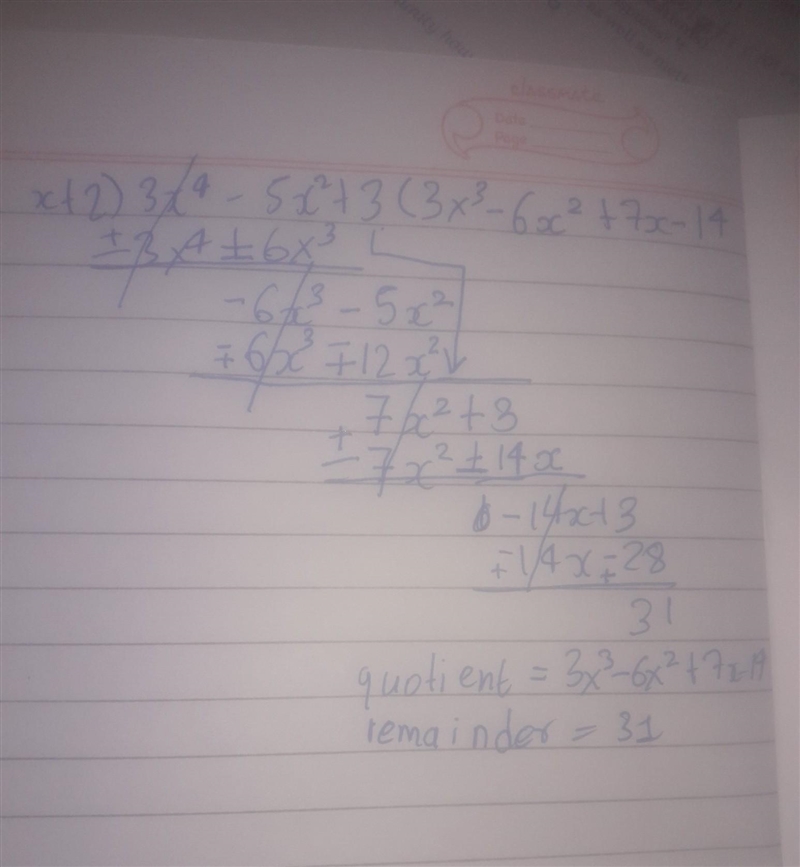 classmate
Date
Page
x+2) 3x⁴ - 5x² + 3 (3x³ - 6x² + 7x - 14
± 3x4 ± 6x³
- 6x³ - 5x²
∓ 6x³ ∓ 12x²
7x² + 3
± 7x² ± 14x
- 14x + 3
∓ 14x ∓ 28
31
quotient = 3x³ - 6x² + 7x - 14
remainder = 31